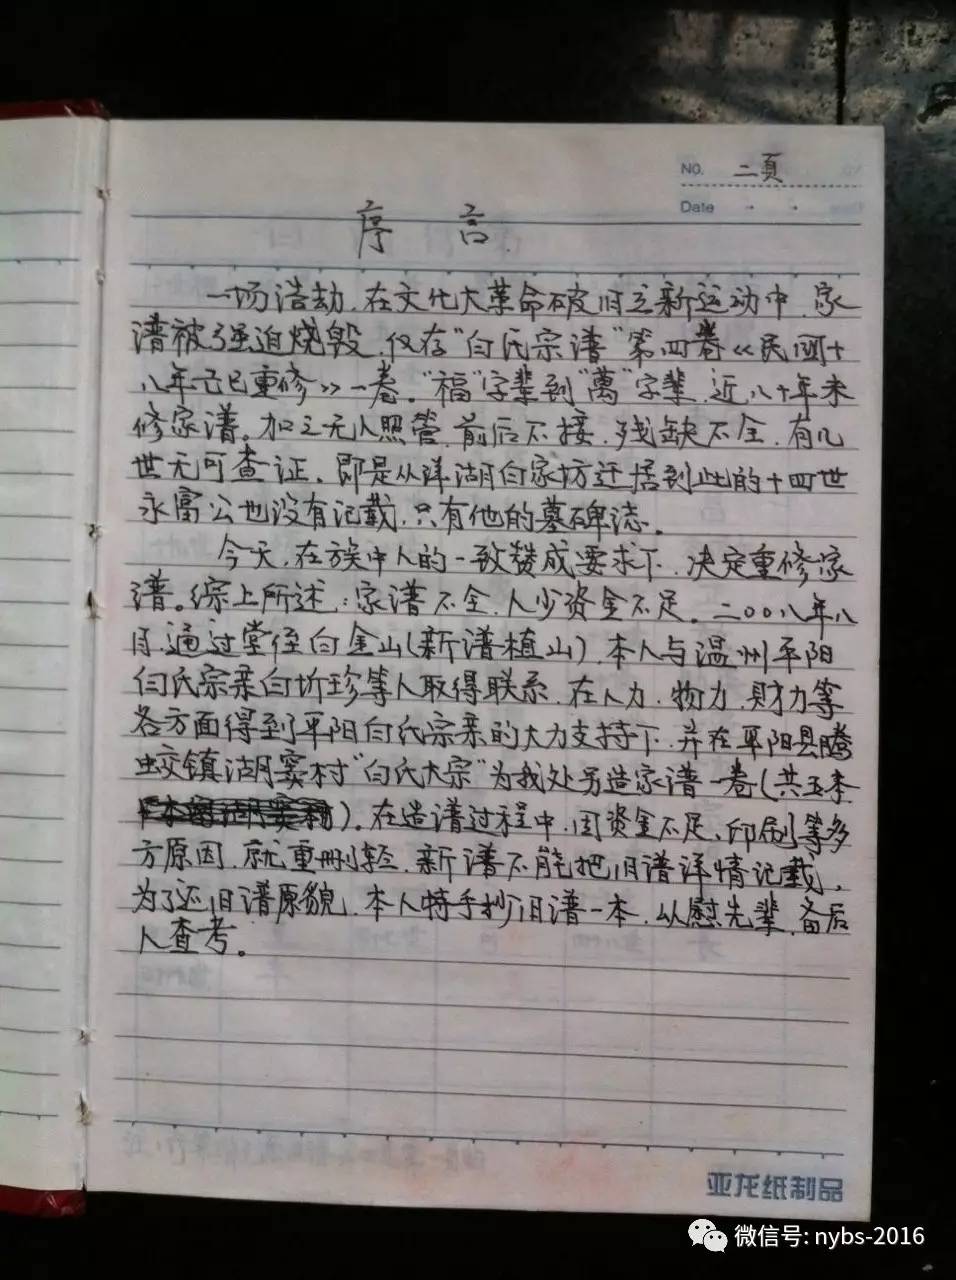 NO. 二頁
Date
序言
一场浩劫,在文化大革命破旧立新运动中,家
谱被强迫烧毁,仅存"白氏宗谱"第四卷《民国十
八年己巳重修》一卷。"福"字辈到"萬"字辈,近八十年未
修家谱。加之无人照管,前后不接,残缺不全,有几
世无可查证。即是从洋湖白家坊迁居到此的十四世
永富公也没有记载,只有他的墓碑誌。
今天,在族中人的一致赞成要求下,决定重修家
谱。综上所述:家谱不全,人少资金不足。二00八年八
月,通过堂侄白金山(新谱植山),本人与温州平阳
白氏宗亲白圻珍等人取得联系,在人力、物力、财力等
各方面得到平阳白氏宗亲的大力支持下,并在平阳县腾
蛟镇湖窦村"白氏大宗"为我处另造家谱一卷(共五本
)。在造谱过程中,因资金不足、印刷等多
方原因,就重删轻,新谱不能把旧谱详情记载,
为了还旧谱原貌,本人特手抄旧谱一本,以慰先辈,备后
人查考。
亚龙纸制品
微信号: nybs-2016